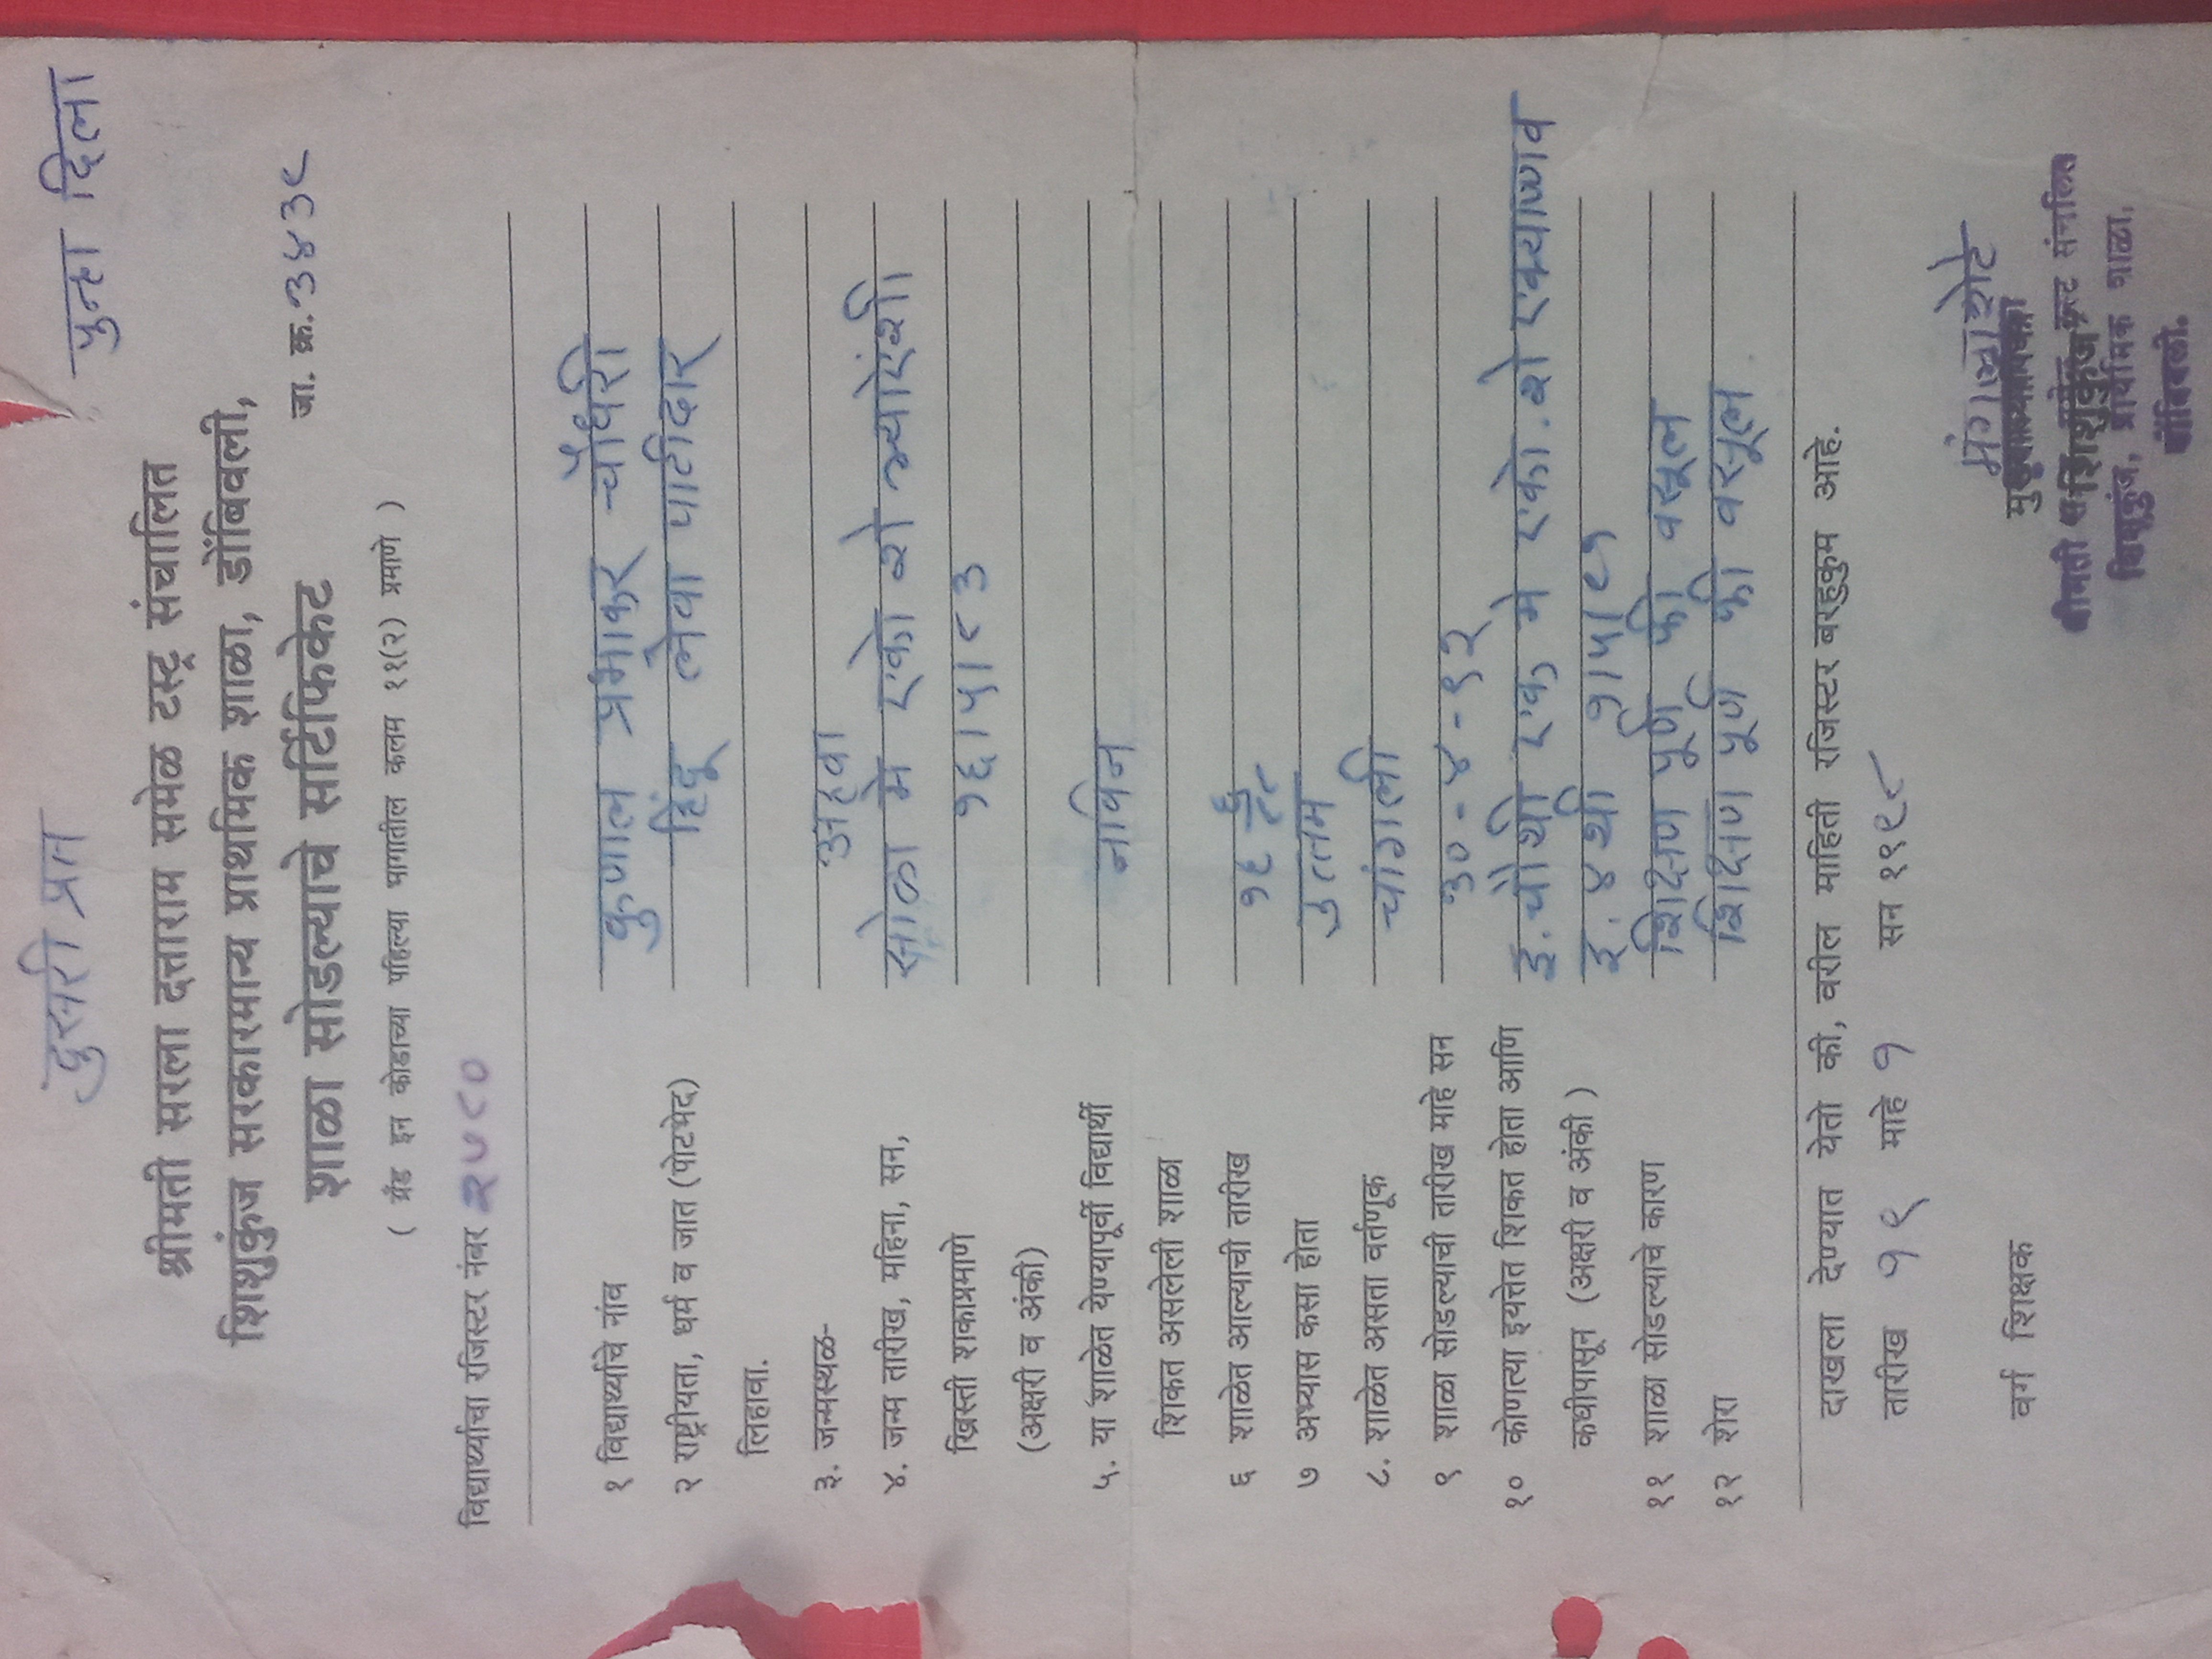 दुसरी प्रत
पुन्हा दिला
श्रीमती सरला दत्ताराम समेळ ट्रस्ट संचालित
शिशुकुंज सरकारमान्य प्राथमिक शाळा, डोंबिवली,
शाळा सोडल्याचे सर्टिफिकेट
जा. क्र. ३४३८
( ग्रँट इन कोडाच्या पहिल्या भागातील कलम ११(२) प्रमाणे )
विद्यार्थ्याचा रजिस्टर नंबर २५८०
१ विद्यार्थ्याचे नांव कुणाल प्रभाकर चौधरी
२ राष्ट्रीयता, धर्म व जात (पोटभेद) हिंदू लेवा पाटीदार
लिहावा.
३. जन्मस्थळ-
४. जन्म तारीख, महिना, सन, सोळा मे एकोणीसशे त्र्याऐंशी
ख्रिस्ती शकाप्रमाणे १६।५।८३
(अक्षरी व अंकी)
५. या शाळेत येण्यापूर्वी विद्यार्थी नविन
शिकत असलेली शाळा
६ शाळेत आल्याची तारीख
७ अभ्यास कसा होता उत्तम
८. शाळेत असता वर्तणुक चांगली
९ शाळा सोडल्याची तारीख माहे सन ३०-४-९२
१० कोणत्या इयत्तेत शिकत होता आणि इ. चौथी एक मे
कधीपासून (अक्षरी व अंकी ) इ. ४ थी १।५।९१
११ शाळा सोडल्याचे कारण शिक्षण पूर्ण फी वसूल
१२ शेरा शिक्षण पूर्ण फी वसूल
दाखला देण्यात येतो की, वरील माहिती रजिस्टर बरहुकुम आहे.
तारीख १९ माहे १ सन १९९८
वर्ग शिक्षक
शिशुकुंज, प्राथमिक शाळा,
डोंबिवली.